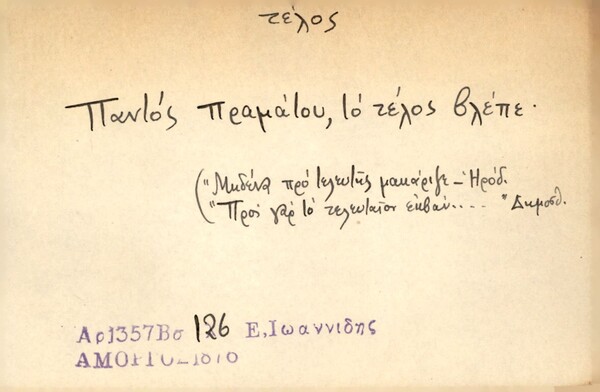 τέλος
Παντός πραμάτου, τό τέλος βλέπε.
("Μηδένα πρό τελευτῆς μακάριζε - Ἡρόδ.
("Πρός γάρ τό τελευταῖον ἐκβάν.... " Δημοσθ.
Αρ1357Βσ 126 Ε,Ιωαννιδης
ΑΜΟΡΓΟΣ1876